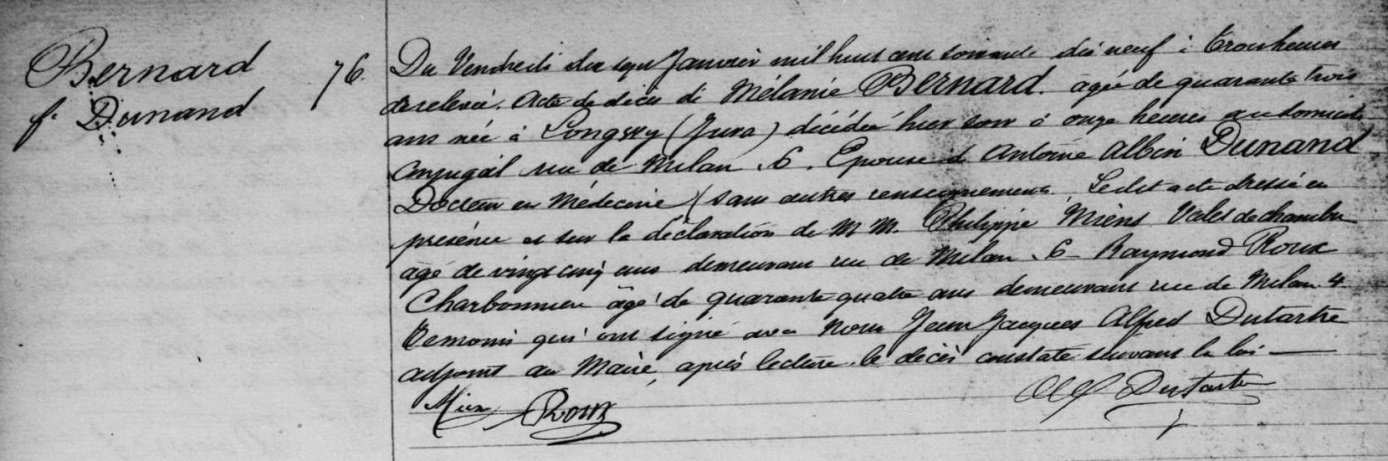 Bernard
f. Dunand
76.
Du Vendredi dix sept Janvier mil huit cent soixante dix neuf à trois heures
de relevée. Acte de décès de Mélanie BERNARD. agée de quarante trois
ans née à Longwy (Jura) décédée hier soir à onze heures au domicile
conjugal rue de Milan .6. Epouse de Antoine Albin DUNAND
Docteur en Médecine / sans autres renseignements. Ledit acte dressé en
présence et sur la déclaration de M M. Philippe Miens Valet de chambre
âgé de vingt cinq ans demeurant rue de Milan .6 - Raymond Roux
Charbonnier âgé de quarante quatre ans demeurant rue de Milan 4.
Témoins qui ont signé avec Nous Jean Jacques Alfred Dutartre
adjoint au Maire, après lecture, le décès constaté suivant la loi —
Roux
Alf Dutartre